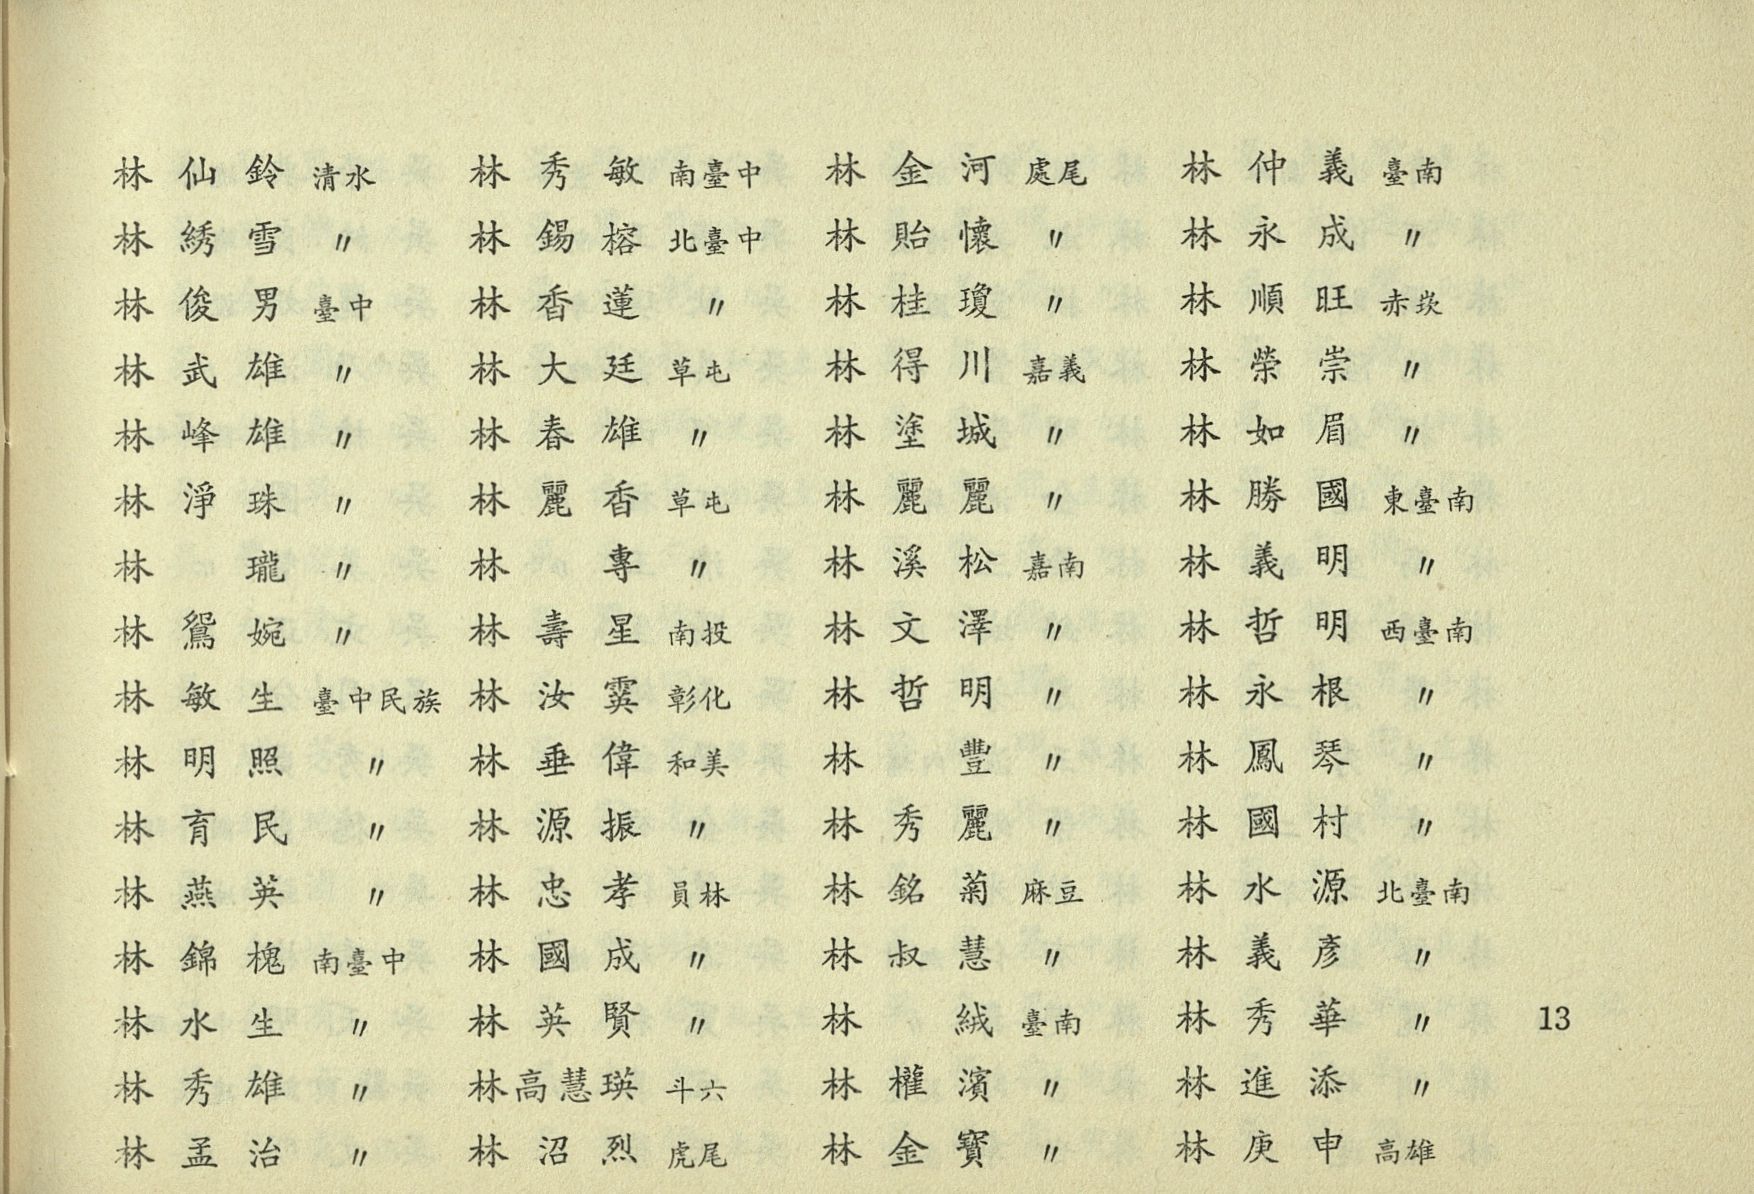 林仙鈴 清水 林秀敏 南臺中 林金河 處尾 林仲義 臺南
林綉雪 〃 林錫榕 北臺中 林貽懷 〃 林永成 〃
林俊男 臺中 林香蓮 〃 林桂瓊 〃 林順旺 赤崁
林武雄 〃 林大廷 草屯 林得川 嘉義 林榮崇 〃
林峰雄 〃 林春雄 〃 林塗城 〃 林如眉 〃
林淨珠 〃 林麗香 草屯 林麗麗 〃 林勝國 東臺南
林瓏 〃 林專 〃 林溪松 嘉南 林義明 〃
林鴛婉 〃 林壽星 南投 林文澤 〃 林哲明 西臺南
林敏生 臺中民族 林汝霙 彰化 林哲明 〃 林永根 〃
林明照 〃 林垂偉 和美 林豐 〃 林鳳琴 〃
林育民 〃 林源振 〃 林秀麗 〃 林國村 〃
林燕英 〃 林忠孝 員林 林銘菊 麻豆 林水源 北臺南
林錦槐 南臺中 林國成 〃 林叔慧 〃 林義彥 〃
林水生 〃 林英賢 〃 林絨 臺南 林秀華 〃 13
林秀雄 〃 林高慧瑛 斗六 林權濱 〃 林進添 〃
林孟治 〃 林沼烈 虎尾 林金寶 〃 林庚申 高雄